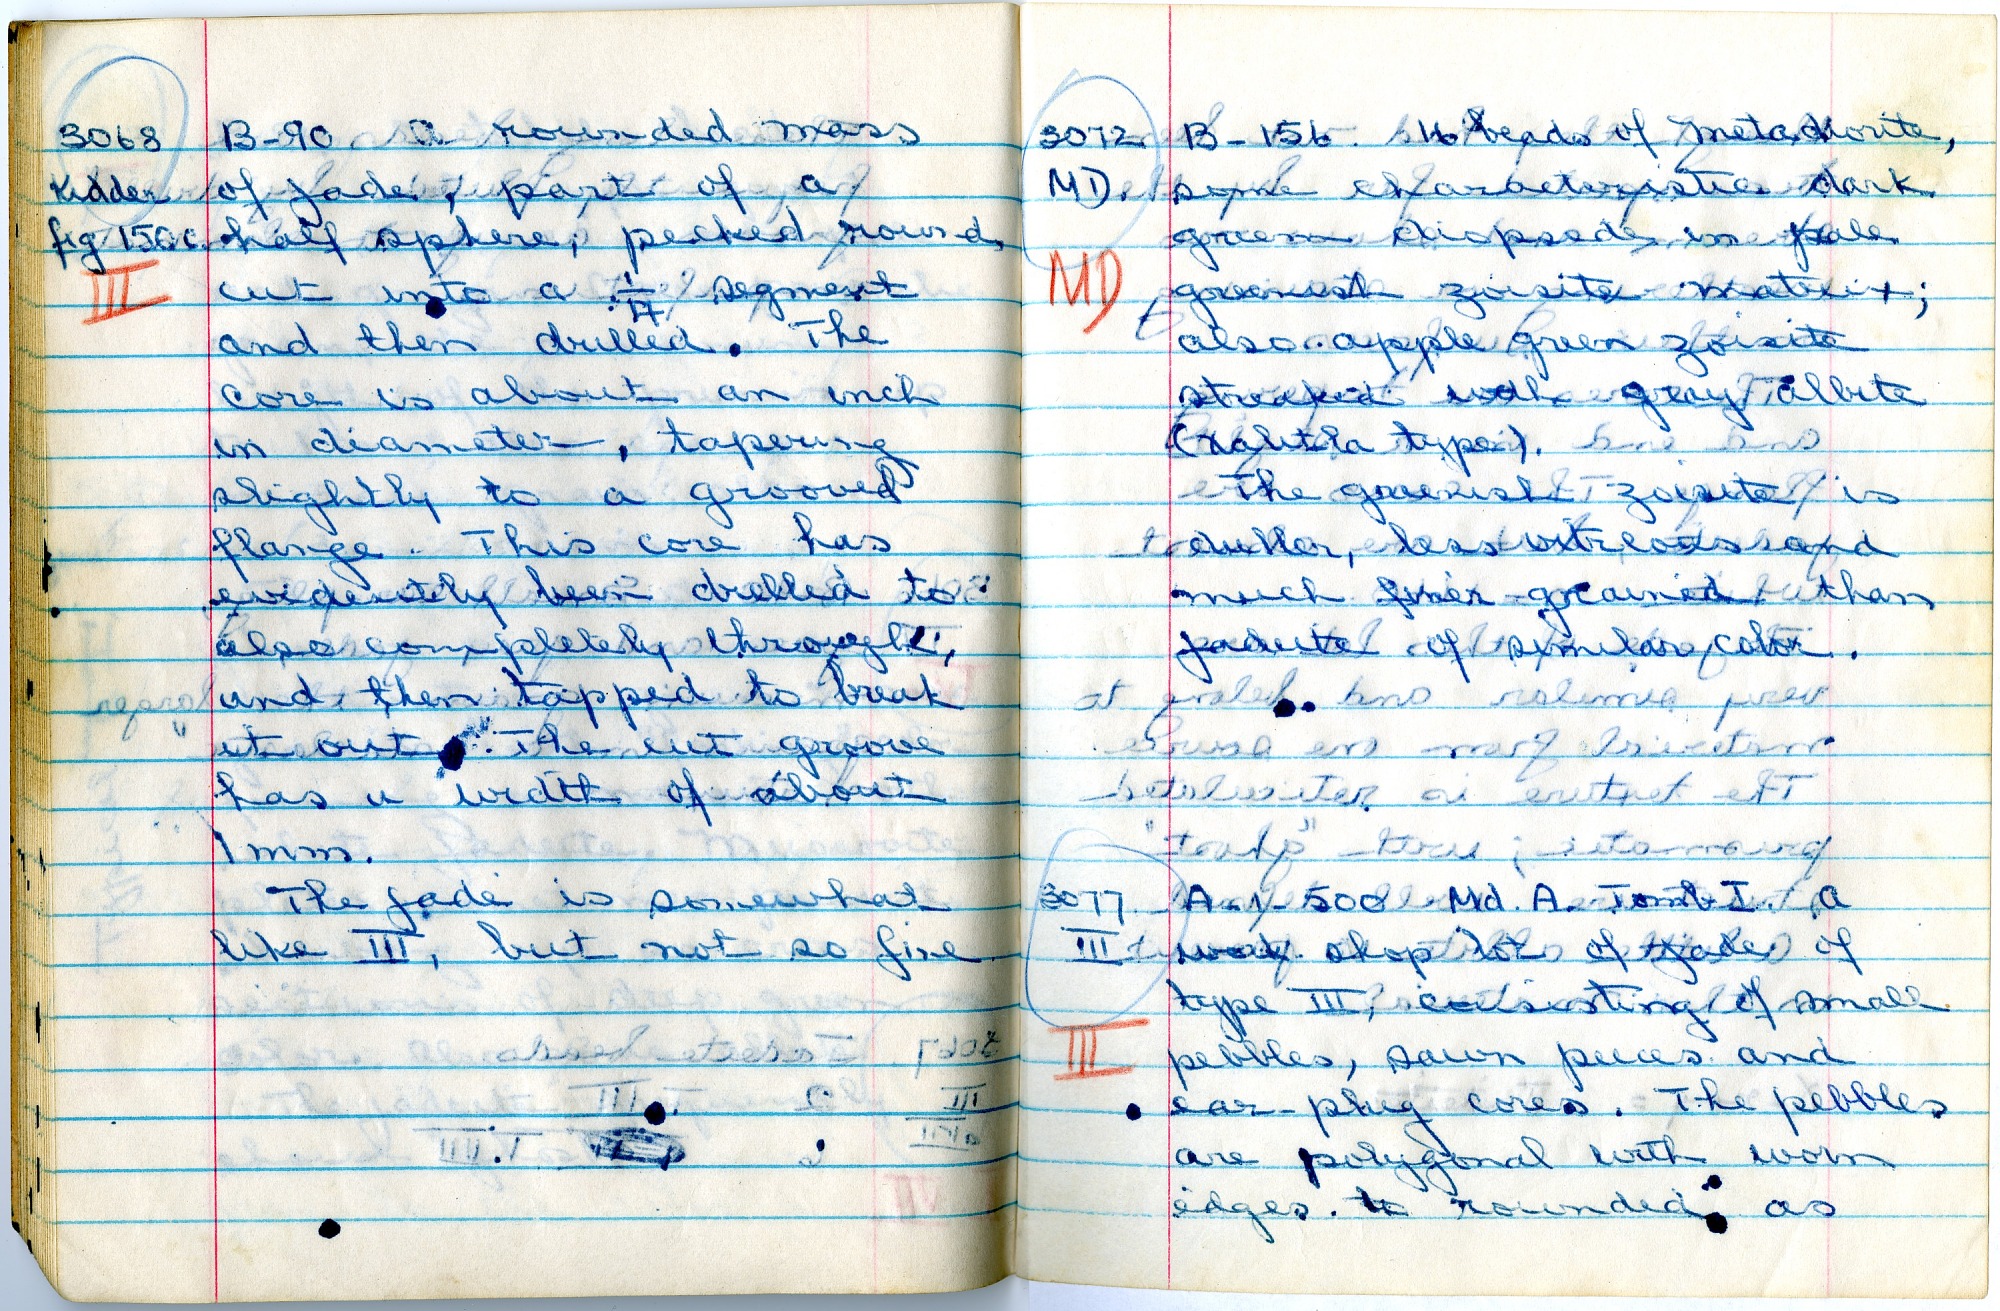 3068 B-90. A rounded mass
Kidder of jade, part of a
fig 150c. half sphere, pecked round,
III cut into a 1/17 segment
and then drilled. The
core is about an inch
in diameter, tapering
slightly to a grooved
flange. This core has
evidently been drilled to
also completely through,
and then tapped to break
it out. The cut groove
has a width of about
1 mm.
The jade is somewhat
like III, but not so fine
3072 B-156. 16 beads of metadiorite,
MD. some characteristic dark
green diopside in pale
MD greenish zoisite matrix;
also apple green zoisite
streaked with gray albite
type).
The greenish zoisite is
duller, less vitreous and
much finer-grained than
jadeite of similar color.
3077 A-1-508 Md. A. Tomb I. A
III work shop lot of jade of
type III, consisting of small
III pebbles, sawn pieces and
ear-plug cores. The pebbles
are polygonal with worn
edges to rounded, as